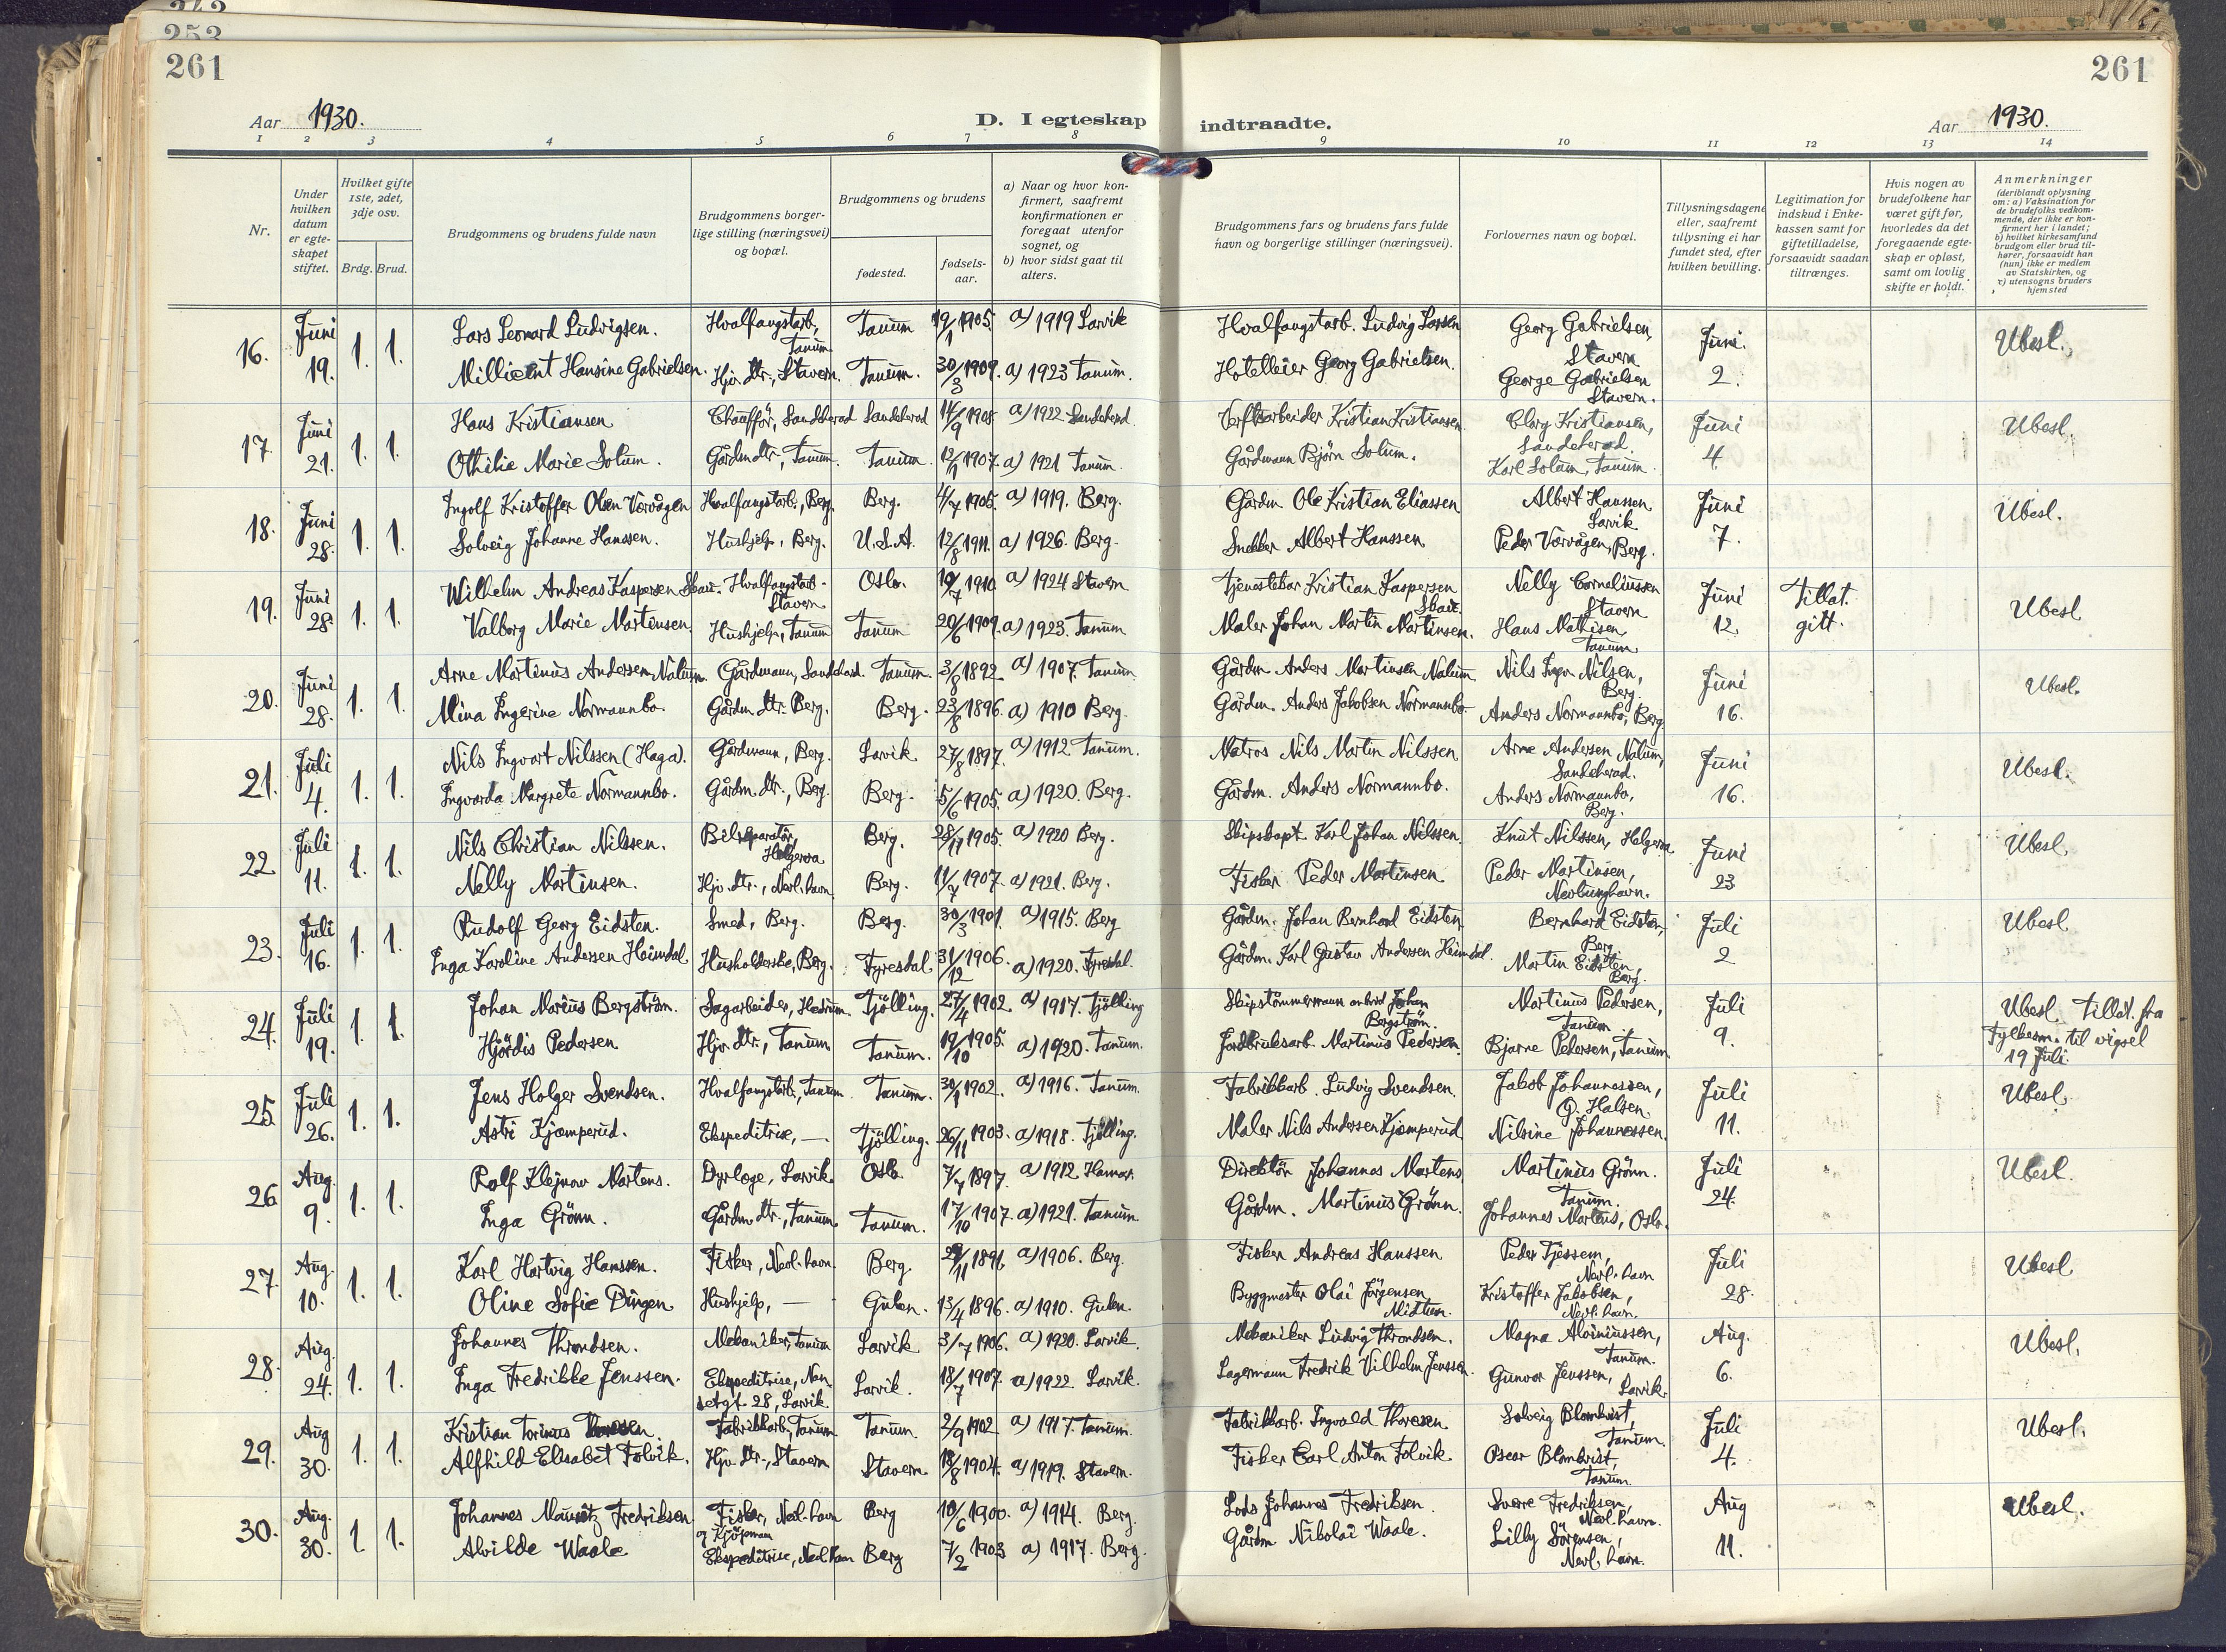 242
253
261
261
Aar 1930.
D. I egteskap indtraadte.
Aar 1930.
1 2 3 4 5 6 7 8 9 10 11 12 13 14
Nr.
Under hvilken datum er egte-skapet stiftet.
Hvilket gifte 1ste, 2det, 3dje osv.
Brdg. Brud.
Brudgommens og brudens fulde navn
Brudgommens borger-lige stilling (næringsvei) og bopæl.
Brudgommens og brudens
fødested.
fødsels-aar.
a) Naar og hvor kon-firmert, saafremt konfirmationen er foregaat utenfor sognet, og
b) hvor sidst gaat til alters.
Brudgommens fars og brudens fars fulde navn og borgerlige stillinger (næringsvei).
Forlovernes navn og bopæl.
Tillysningsdagene eller, saafremt tillysning ei har fundet sted, efter hvilken bevilling.
Legitimation for indskud i Enke-kassen samt for giftetilladelse, forsaavidt saadan tiltrænges.
Hvis nogen av brudefolkene har været gift før, hvorledes da det foregaaende egte-skap er opløst, samt om lovlig skifte er holdt.
Anmerkninger
(deriblandt oplysning om: a) Vaksination for de brudefolks vedkom-mende, der ikke er kon-firmert her i landet; b) hvilket kirkesamfund brudgom eller brud til-hører, forsaavidt han (hun) ikke er medlem av Statskirken, og c) utensogns bruders hjemsted
16. Juni 19. 1. 1.
Lars Leonard Ludvigsen. Hvalfangstarb., Tanum Tanum 19/1 1905. a) 1919 Larvik Hvalfangstarb. Ludvig Larsen Georg Gabrielsen, Stavern Juni. 2. Ubesl.
Millicent Hansine Gabrielsen. Hjv. dtr., Stavern. Tanum. 30/3 1909. a) 1923 Tanum. Hotelleier Georg Gabrielsen. George Gabrielsen Stavern.
17. Juni 21. 1. 1.
Hans Kristiansen Chauffør, Sandeherad Sandeherad 14/9 1908 a) 1922 Sandeherad Verftsarbeider Kristian Kristiansen Clarg Kristiansen, Sandeherad. Juni 4. Ubesl.
Othilie Marie Solum. Gårdm dtr., Tanum. Tanum. 12/1 1907. a) 1921 Tanum. Gårdmann Bjørn Solum. Karl Solum, Tanum.
18. Juni 28. 1. 1.
Ingolf Kristoffer Olsen Vorvågen Hvalfangstarb., Berg. Berg. 4/7 1905. a) 1919. Berg. Gårdm Ole Kristian Eliassen Albert Hanssen Larvik Juni 7. Ubesl.
Solveig Johanne Hanssen. Hushjelp, Berg. U.S.A. 12/8 1911. a) 1926. Berg. Snekker Albert Hanssen Peder Vorvågen, Berg.
19. Juni 28. 1. 1.
Wilhelm Andreas Kaspersen Hvalfangstarb. Stavern Oslo. 19/7 1910 a) 1924 Stavern Tjenestekar Kristian Kaspersen Nelly Corneliussen Stavern Juni 12. Tillat. gitt. Ubesl
Valborg Marie Martinsen. Hushjelp, Tanum Tanum 20/6 1909. a) 1923. Tanum Maler Johan Martin Martinsen. Hans Mathisen, Tanum
20. Juni 28. 1. 1.
Arne Martinus Andersen Nalum. Gårdmann, Sandeherad. Tanum. 3/8 1892 a) 1907. Tanum Gårdm Anders Martinsen Nalum Nils Ingv. Nilsen, Berg. Juni 16. Ubesl.
Mina Ingerine Normannbo. Gårdm dtr. Berg. Berg. 23/8 1896. a) 1910 Berg. Gårdm. Anders Jakobsen Normannbo. Anders Normannbo, Berg
21. Juli 4. 1. 1.
Nils Ingvart Nilssen (Haga). Gårdmann, Berg. Larvik 27/8 1897. a) 1912 Tanum. Matros Nils Martin Nilssen Arne Andersen Nalum, Sandeherad. Juni 16. Ubesl.
Ingvarda Margrete Normannbo. Gårdm. dtr., Berg. Berg. 5/6 1905. a) 1920. Berg. Gårdm. Anders Normannbo. Anders Normannbo, Berg.
22. Juli 11. 1. 1.
Nils Christian Nilssen. Bilreparatør, Helgeroa Berg. 28/11 1905. a) 1920 Berg. Skipskapt. Karl Johan Nilssen. Knut Nilssen, Helgeroa Juni 23 Ubesl.
Nelly Martinsen. Hjv. dtr., Nevl. havn Berg. 11/7 1907. a) 1921. Berg. Fisker Peder Martinsen Peder Martinsen, Nevlunghavn.
23. Juli 16. 1. 1.
Rudolf Georg Eidsten. Smed, Berg. Berg. 30/3 1901. a) 1915. Berg Gårdm. Johan Bernhard Eidsten. Bernhard Eidsten, Berg Juli 2 Ubesl
Inga Karoline Andersen Heimdal Husholderske, Berg. Fyresdal 31/12 1906. a) 1920. Fyresdal. Gårdm. Karl Gustav Andersen Heimdal. Martin Eidsten, Berg.
24. Juli 19. 1. 1.
Johan Marius Bergström. Sagarbeider, Hedrum. Tjölling. 27/4 1902. a) 1917. Tjölling Skipstömmermann Johan Bergström. Martinus Pedersen, Tanum Juli 9. Ubesl. Tillat. fra Fylkesm. til vigsel 19 Juli.
Hjördis Pedersen Hjv. dtr., Tanum Tanum. 19/10 1905. a) 1920. Tanum. Jordbruksarb. Martinus Pedersen. Bjarne Pedersen, Tanum.
25. Juli 26. 1. 1.
Jens Holger Svendsen. Hvalfangstarb., Tanum Tanum. 30/1 1902. a) 1916. Tanum. Fabrikkarb. Ludvig Svendsen. Jakob Johannessen, G. Halsen. Juli 11. Ubesl.
Astri Kjæmperud. Ekspeditrise, — Tjölling. 26/11 1903. a) 1918. Tjölling. Maler Nils Andersen Kjæmperud Nilsine Johannessen.
26. Aug. 9. 1. 1.
Rolf Klejnow Martens. Dyrlæge, Larvik. Oslo 7/7 1897. a) 1912 Hamar. Direktör Johannes Martens Martinus Grönn. Tanum Juli 24. Ubesl.
Inga Grönn. Gårdm dtr., Tanum. Tanum. 17/10 1907. a) 1921. Tanum. Gårdm. Martinus Grönn. Johannes Martens, Oslo.
27. Aug. 10. 1. 1.
Karl Hartvig Hanssen. Fisker, Nevl. havn Berg. 1891. a) 1906. Berg. Fisker Andreas Hanssen Peder Tjessem, Nevl. havn Juli 28. Ubesl
Oline Sofie Dingen Hushjelp, — Gulen. 13/4 1896. a) 1910. Gulen. Byggmester Olai Jörgensen Midtun. Kristoffer Jakobsen, Nevl. havn.
28. Aug. 24. 1. 1.
Johannes Throndsen. Mekaniker, Tanum Larvik 3/7 1906. a) 1920. Larvik. Mekaniker Ludvig Throndsen. Magna Alviniussen, Tanum. Aug. 6. Ubesl.
Inga Fredrikke Jenssen. Ekspeditrise, Nansetgt. 28, Larvik. Larvik. 18/7 1907. a) 1922 Larvik. Lagermann Fredrik Vilhelm Jenssen. Gunvor Jenssen, Larvik.
29. Aug 30. 1. 1.
Kristian Torinus Fabrikkarb., Tanum Tanum. 2/9 1902 a) 1917. Tanum. Fabrikkarb. Ingvald Thoresen Solveig Blomkvist, Tanum. Juli 4. Ubesl.
Alfhild Elisabet Folvik. Hjv. dtr., Stavern Stavern. 18/8 1904. a) 1919. Stavern. Fisker Carl Anton Folvik. Oscar Blomkvist, Tanum
30. Aug. 30. 1 1.
Johannes Mauritz Fredriksen Fisker, Nevl. havn og Kjöpmann Berg 10/6 1900. a) 1914. Berg. Lods Johannes Fredriksen. Sverre Fredriksen, Nevl. havn. Aug 11. Ubesl.
Alvilde Waale Ekspeditrise, Nevl havn Berg 7/2 1903 a) 1917. Berg. Gårdm Nikolai Waale. Lilly Sörensen, Nevl. havn.